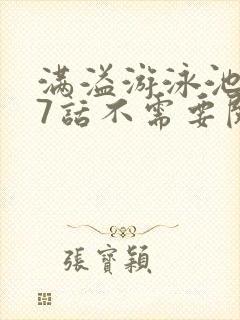 满溢游泳池
7話不需要
張寶穎